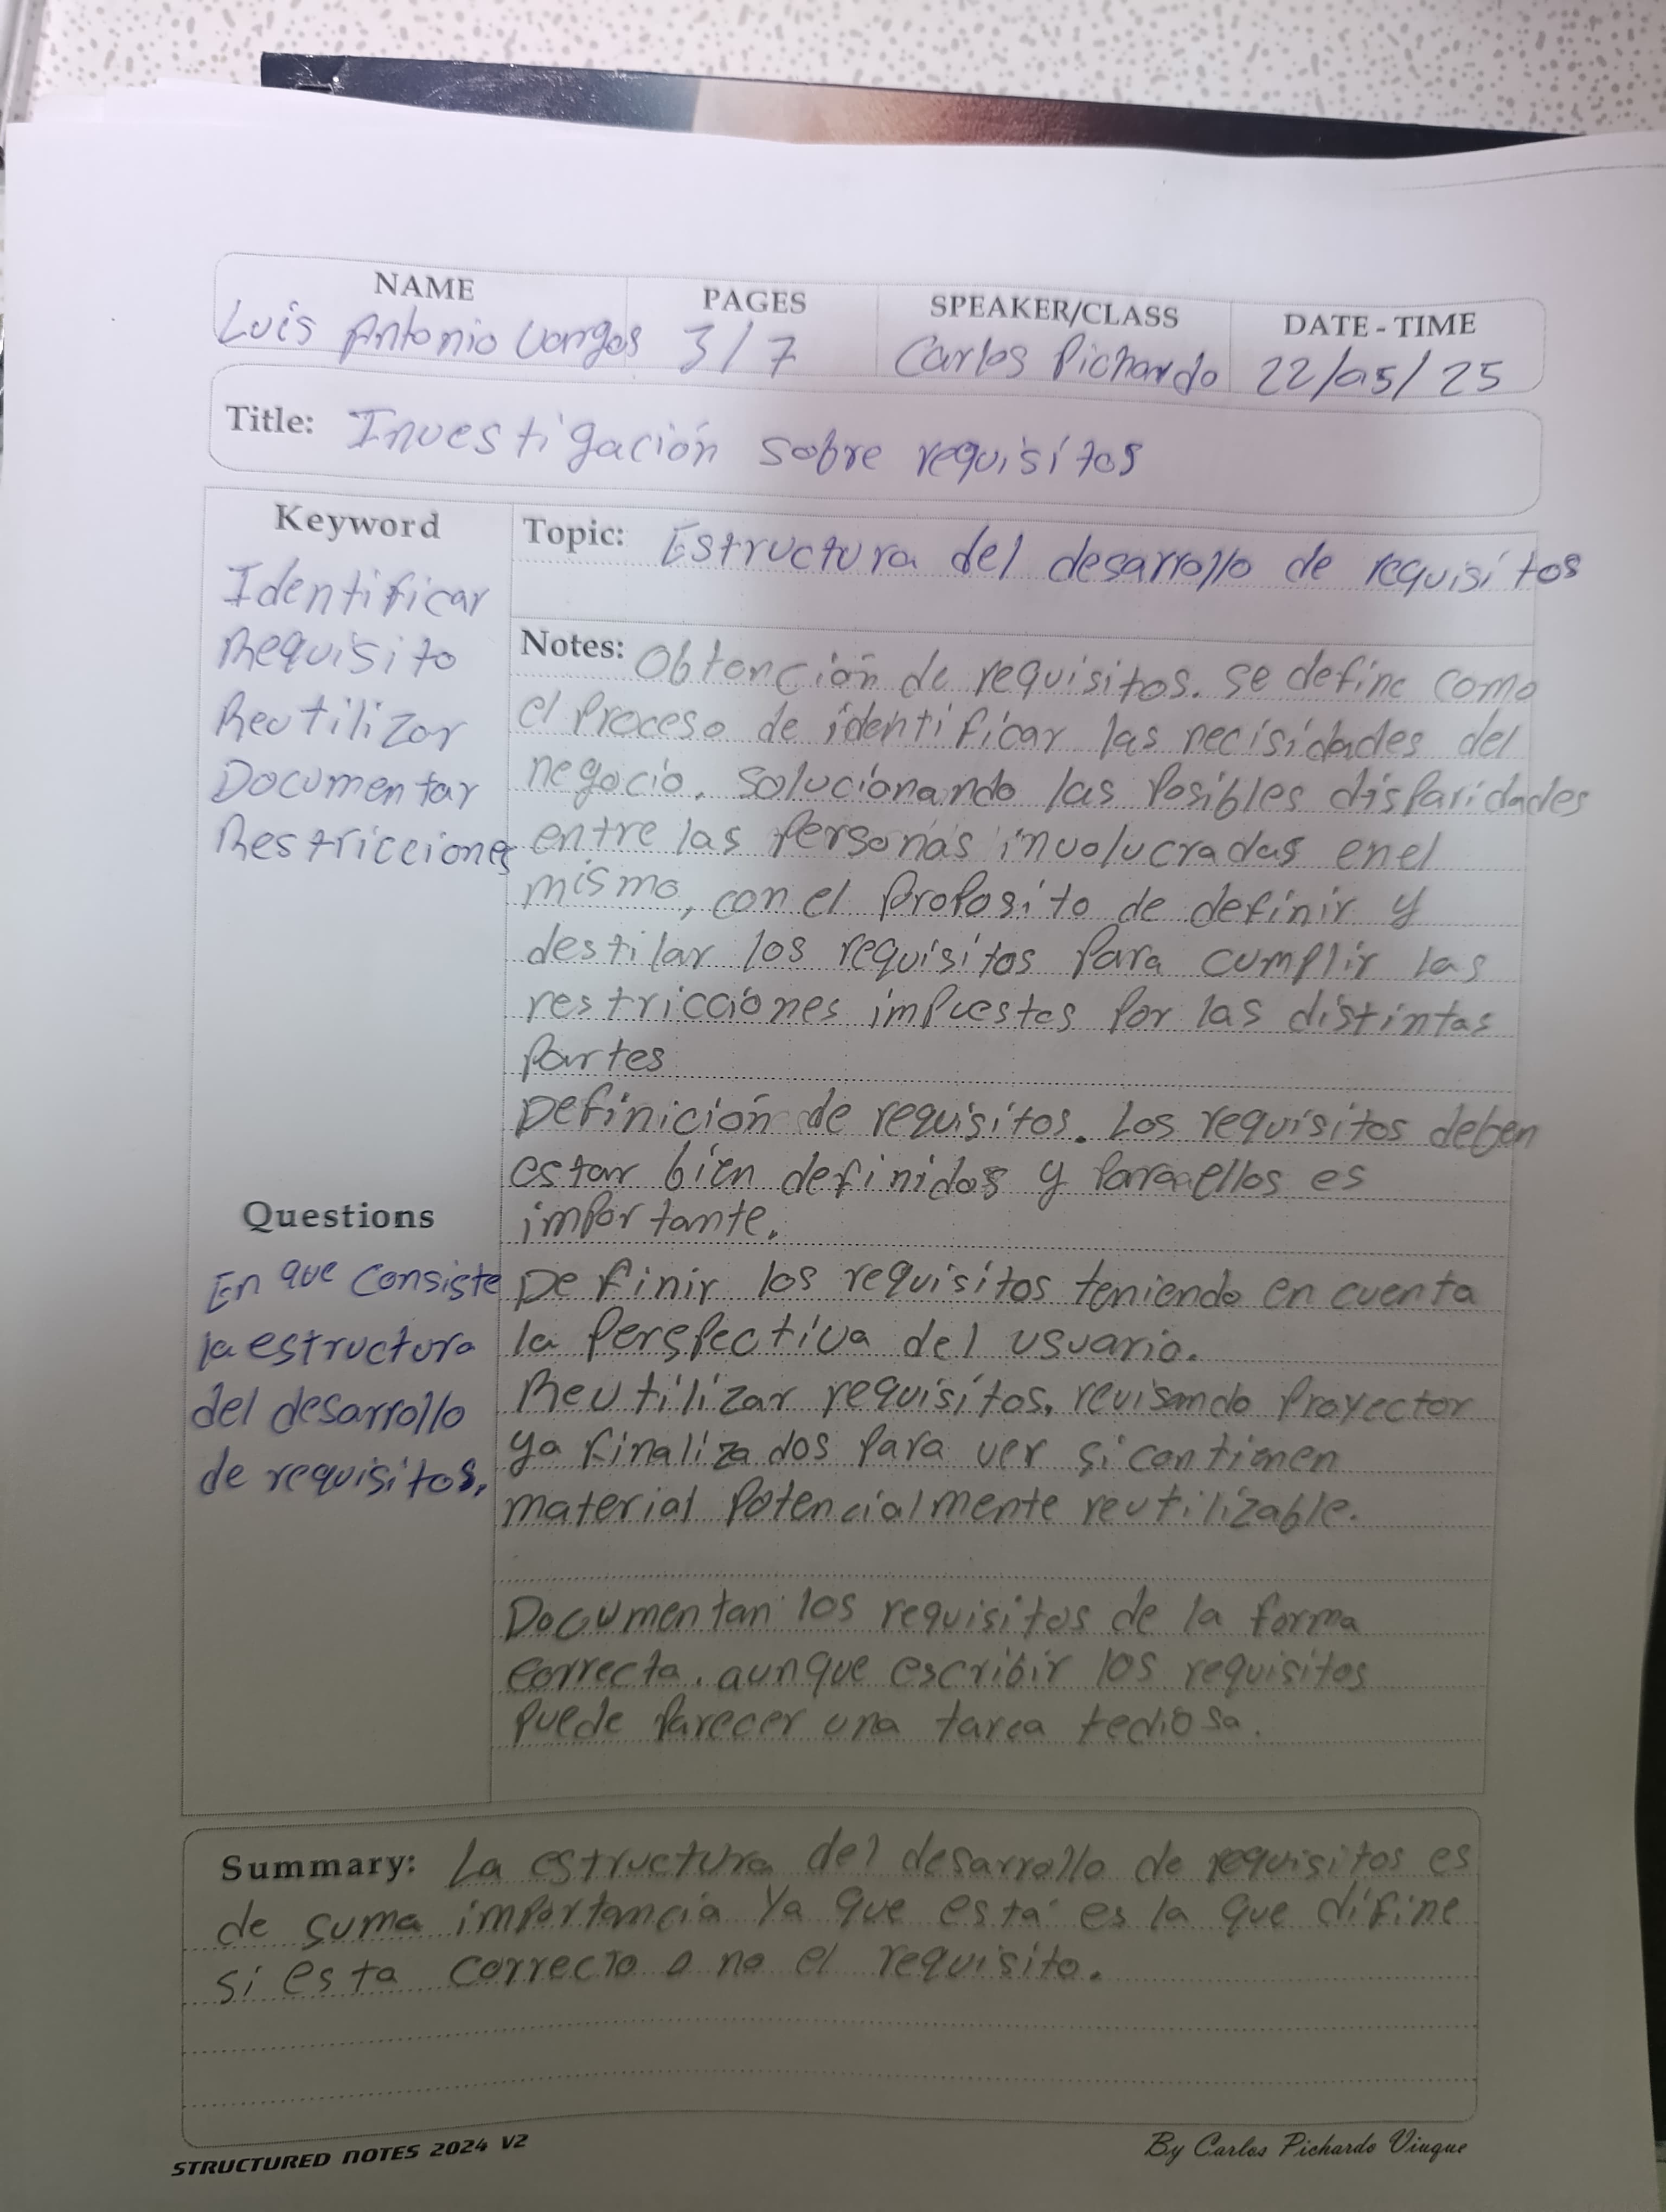 NAME PAGES SPEAKER/CLASS DATE-TIME
Luis Antonio Vargas 3/7 Carlos Pichardo 22/05/25
Title: Investigación sobre requisitos
Keyword
Identificar
Requisito
Reutilizar
Documentar
Restricciones
Questions
En que consiste
la estructura
del desarrollo
de requisitos.
Topic: Estructura del desarrollo de requisitos
Notes: Obtención de requisitos. se define como
el proceso de identificar las necisidades del
negocio. solucionando las posibles disparidades
entre las personas involucradas en el
mismo, con el proposito de definir y
destilar los requisitos para cumplir las
restricciones impuestas por las distintas
partes
Definición de requisitos. Los requisitos deben
estar bien definidos y para ellos es
importante.
Definir los requisitos teniendo en cuenta
la perspectiva del usuario.
Reutilizar requisitos, revisando proyector
ya finalizados para ver si contienen
material potencialmente reutilizable.
Documentan los requisitos de la forma
correcta. aunque escribir los requisitos
puede parecer una tarea tediosa.
Summary: La estructura del desarrollo de requisitos es
de suma importancia ya que está es la que difine
si esta correcto o no el requisito.
STRUCTURED NOTES 2024 V2
By Carlos Pichardo Viuque